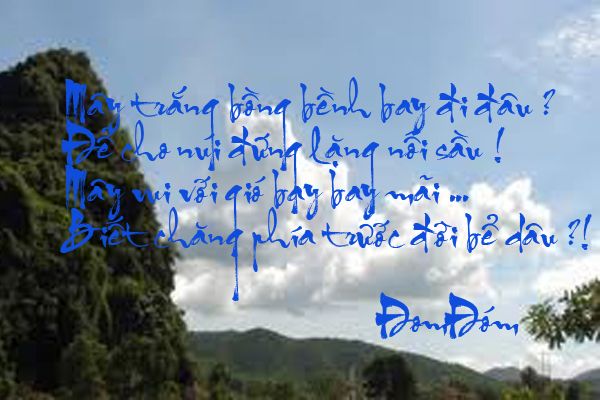 Mây trắng bồng bềnh bay đi đâu ?
Để cho núi đứng lặng nỗi sầu !
Mây vui với gió bay bay mãi ...
Biết chăng phía trước đời bể dâu ?!
ĐomĐóm